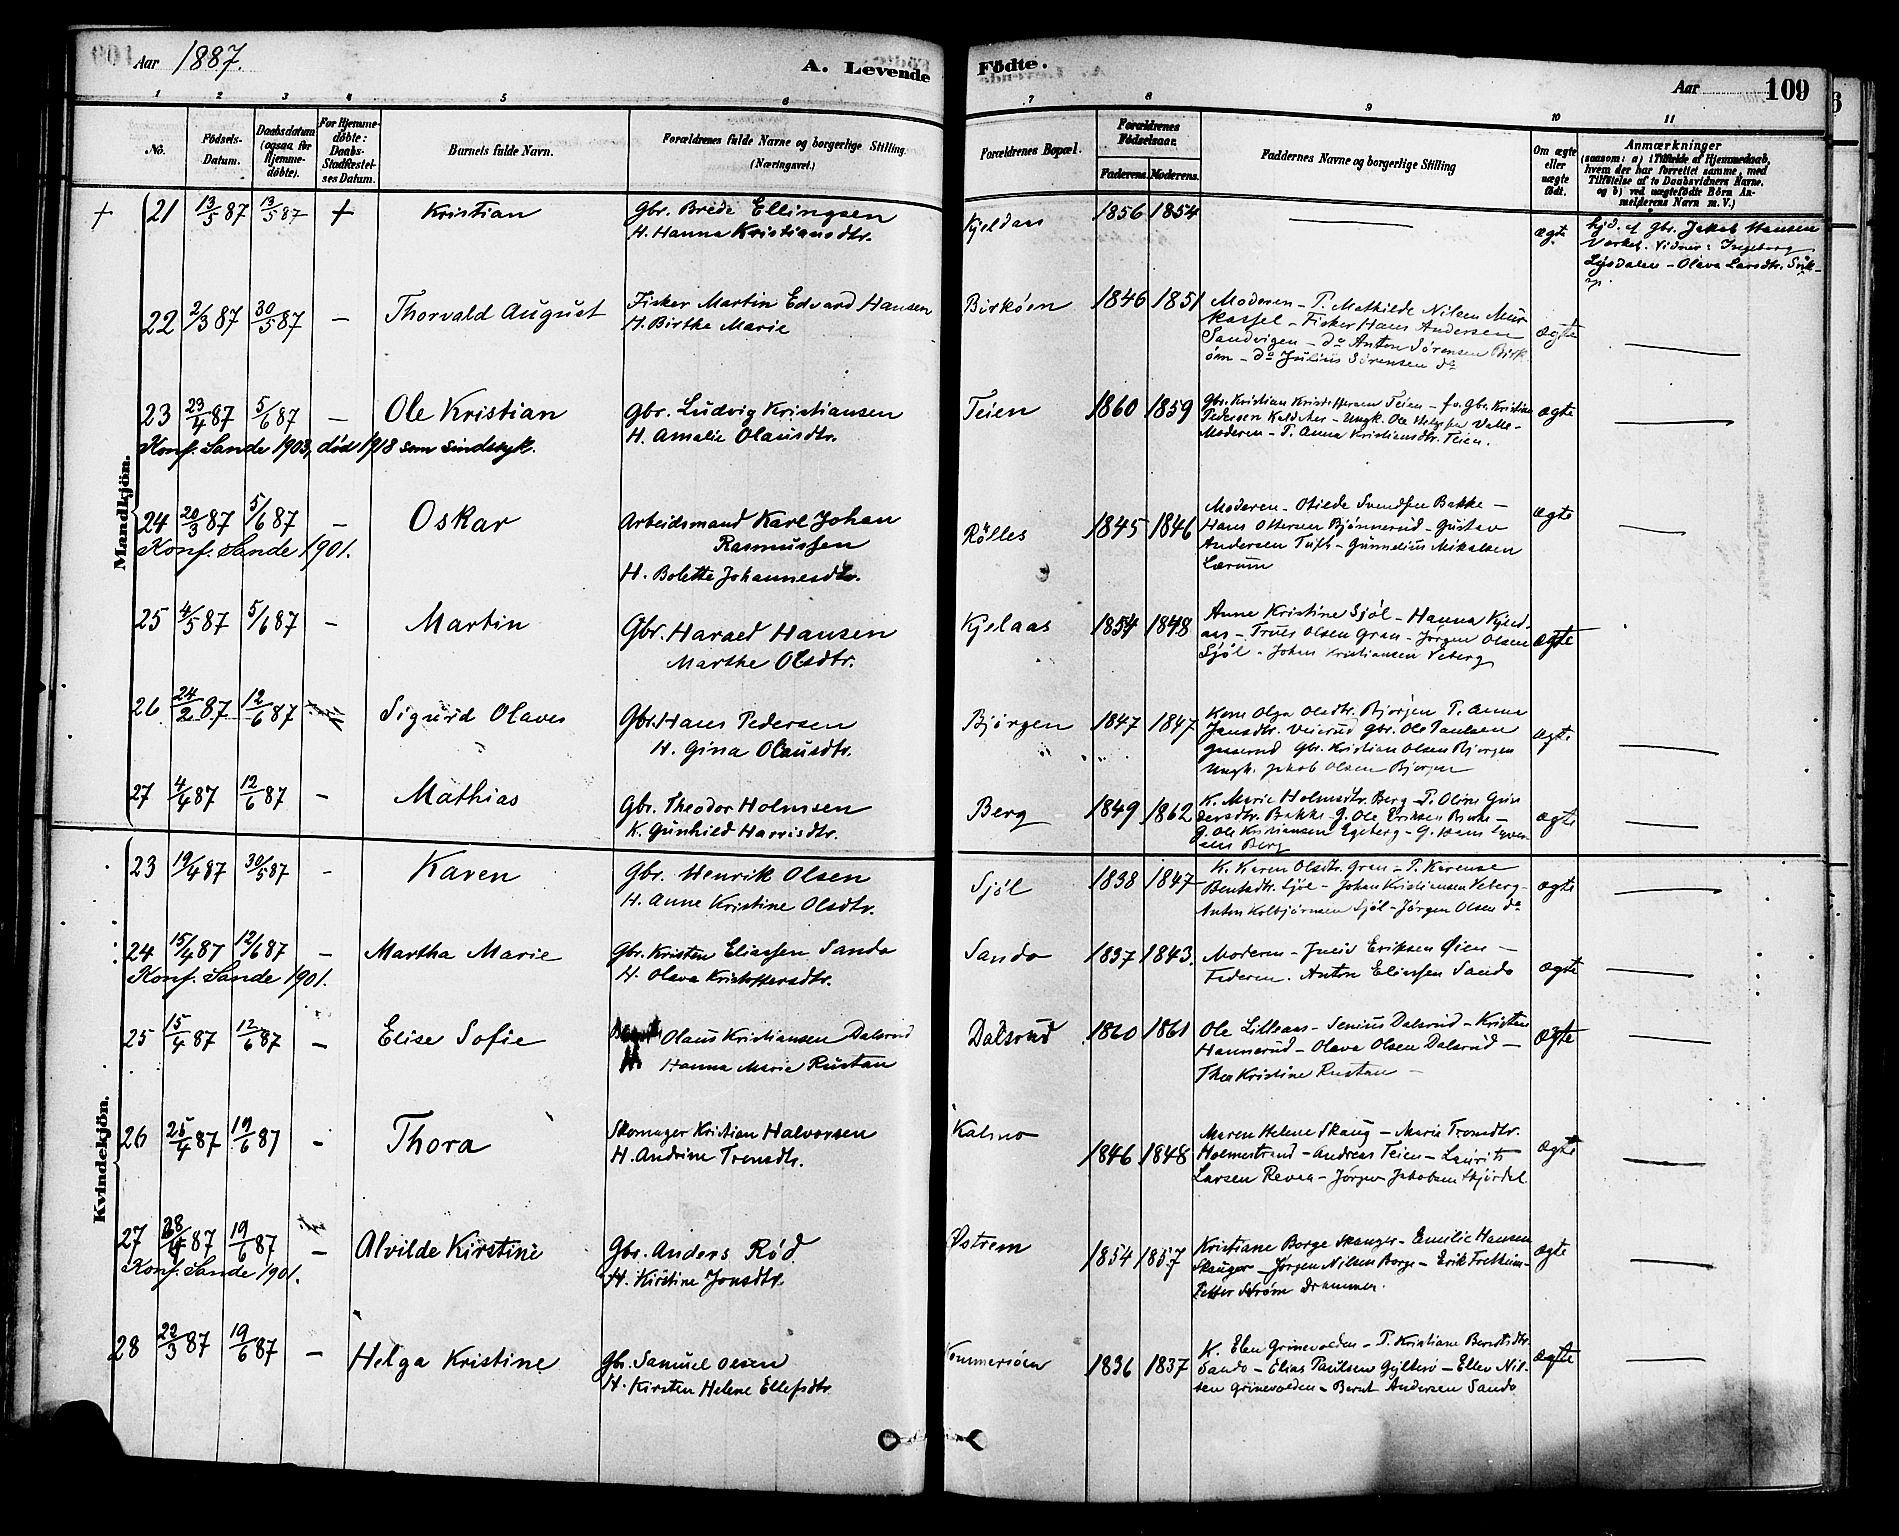 Aar 1887. A. Levende Fødte. Aar 109
1 2 3 4 5 6 7 8 9 10 11
No.
Födsels-Datum.
Daabsdatum (ogsaa for Hjemmedöbte).
For Hjemmedöbte: Daabs-Stadfæstelses Datum.
Barnets fulde Navn.
Forældrenes fulde Navne og borgerlige Stilling. (Næringsvei.)
Forældrenes Bopæl.
Forældrenes Födselsaar.
Faderens. Moderens.
Faddernes Navne og borgerlige Stilling
Om ægte eller uægte født.
Anmærkninger
(saasom: a) i Tilfælde af Hjemmedaab, hvem der har forrettet samme, med Tilføielse af to Daabsvidners Navne. og b) ved uægtefødte Børn Anmelderens Navn m. V.)
Mandkjön.
+ 21 13/5 87 13/5 87 + Kristian Gbr. Brede Ellingsen Kjeldaas 1856 1854 ægte hjd. af Gbr. Jakob Hansen
H. Hanna Kristiansdtr. Vidner: Ingeborg
Lysdalen - Olava Larsdtr.
22 2/3 87 30/5 87 – Thorvald August Fisker Martin Edvard Hansen Birköen 1846 1851 Moderen – P. Mathilde Nilsen ægte
H. Birthe Marie Fisker Hans Andersen
Sandvigen – do Anton Sørensen Birk
öen – do Julius Sørensen do
23 23/4 87 5/6 87 – Ole Kristian Gbr. Ludvig Kristiansen Teien 1860 1859 Gbr. Kristian Kristoffersen Teien – f.v. Gbr. Kristian ægte
Konf. Sande 1903, død 1918 som sindssyk. H. Amalie Olausdtr. Pedersen – Ungk. Ole Valle –
Moderen – P. Anna Kristiansdtr. Teien.
24 20/3 87 5/6 87 – Oskar Arbeidsmand Karl Johan Rölles 1845 1846 Moderen – Otilde Svendsen Bakke – ægte
Konf. Sande 1901. Rasmussen Hans Ottersen Bjønnerud – Gustav
H. Bolette Johannesdtr. Andersen Tuft – Gunnelius Mikalsen
Lærum
25 4/5 87 5/6 87 – Martin Gbr. Harald Hansen Kjelaas 1854 1848 Anne Kristine Sjöl – Hanna Kjeld- ægte
Marthe Olsdtr. aas – Truls Olsen Gran – Jörgen Olsen
Sjöl – Johan Kristiansen Veberg
26 24/2 87 12/6 87 Sigurd Olaves Gbr. Hans Pedersen Bjørgen 1847 1847 Kone Olga Olsdtr. Bjorgen P. Anna ægte
H. Gina Olausdtr. Jensdtr. Gbr. Ole Paulsen
Gbr. Kristian Olsen Bjorgen
Ungk. Jakob Olsen Bjorgen
27 4/4 87 12/6 87 – Mathias Gbr. Theodor Holmsen Berg 1849 1862 K. Marie Holmsdtr. Berg – P. Oline Gun ægte
K. Gunhild Harrisdtr. dersdtr. Bakke – G. Ole Eriksen –
G. Ole Kristiansen Egeberg – G. Hans
Berg
Kvindekjön.
23 19/4 87 30/5 87 – Karen Gbr. Henrik Olsen Sjöl 1838 1847 K. Karen Olsdtr. Gran – P. Karense ægte
H. Anne Kristine Olsdtr. Berntsdtr. Sjöl – Johan Kristiansen Veberg –
Anton Kolbjørnsen Sjöl – Jörgen Olsen do
24 15/4 87 12/6 87 – Martha Marie Gbr. Kristen Eliassen Sando Sando 1837 1843. Moderen – Eriksen Øien – ægte
Konf. Sande 1901. H. Olava Kristoffersdtr. Faderen. Anton Eliassen Sando
25 15/4 87 12/6 87 – Elise Sofie Olaus Kristiansen Dalsrud Dalsrud 1860 1861 Ole Lilleaas – Senius Dalsrud – Kristen ægte
H. Hanna Marie Rustan Hannerud – Olava Olsen Dalsrud –
Thea Kristine Rustan –
26 25/4 87 19/6 87 – Thora Skomager Kristian Halvorsen Kalsno 1846 1848 Maren Helene Skaug – Marie Tronsdtr. ægte
H. Andrine Tronsdtr. Holmestrand – Andreas Teien – Laurits
Larsen Revaa – Jørgen Jakobsen
27 28/4 87 19/6 87 – Alvilde Kirstine Gbr. Anders Röd Østrem 1854 1857 Kristiane Borge Skauger – Emilie Hansen ægte
Konf. Sande 1901. H. Kirstine Jonsdtr. Skauger – Jørgen Nilsen Borge – Erik
Petter Strøm Drammen.
28 22/3 87 19/6 87 – Helga Kristine Gbr. Samuel Olsen Kommersöen 1836 1837 K. Elen Grinevolden – P. Kristiane Berntsdtr. ægte
H. Kirsten Helene Ellefsdtr. Sando – Elias Paulsen – Ellen Nil-
sen Grinevolden – Bernt Andersen Sando